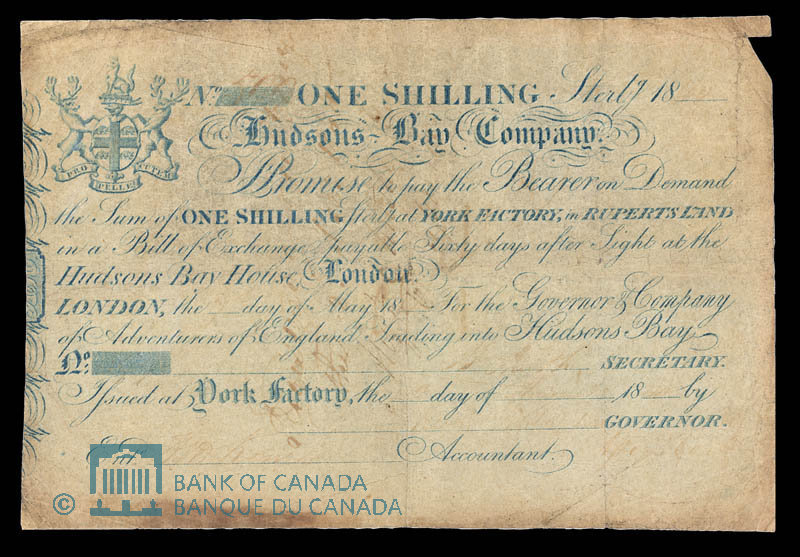 No. ONE SHILLING Sterlg 18
Hudsons-Bay Company.
PRO PELLE CUTEM
I Promise to pay the Bearer on Demand
the Sum of ONE SHILLING Sterlg at YORK FACTORY, in RUPERTS LAND
in a Bill of Exchange payable Sixty days after Sight at the
Hudsons Bay House London.
LONDON, the day of May 18 For the Governor & Company
of Adventurers of England Trading into Hudsons Bay.
No. SECRETARY.
Issued at York Factory, the day of 18 by
GOVERNOR.
Entd Accountant
© BANK OF CANADA
BANQUE DU CANADA